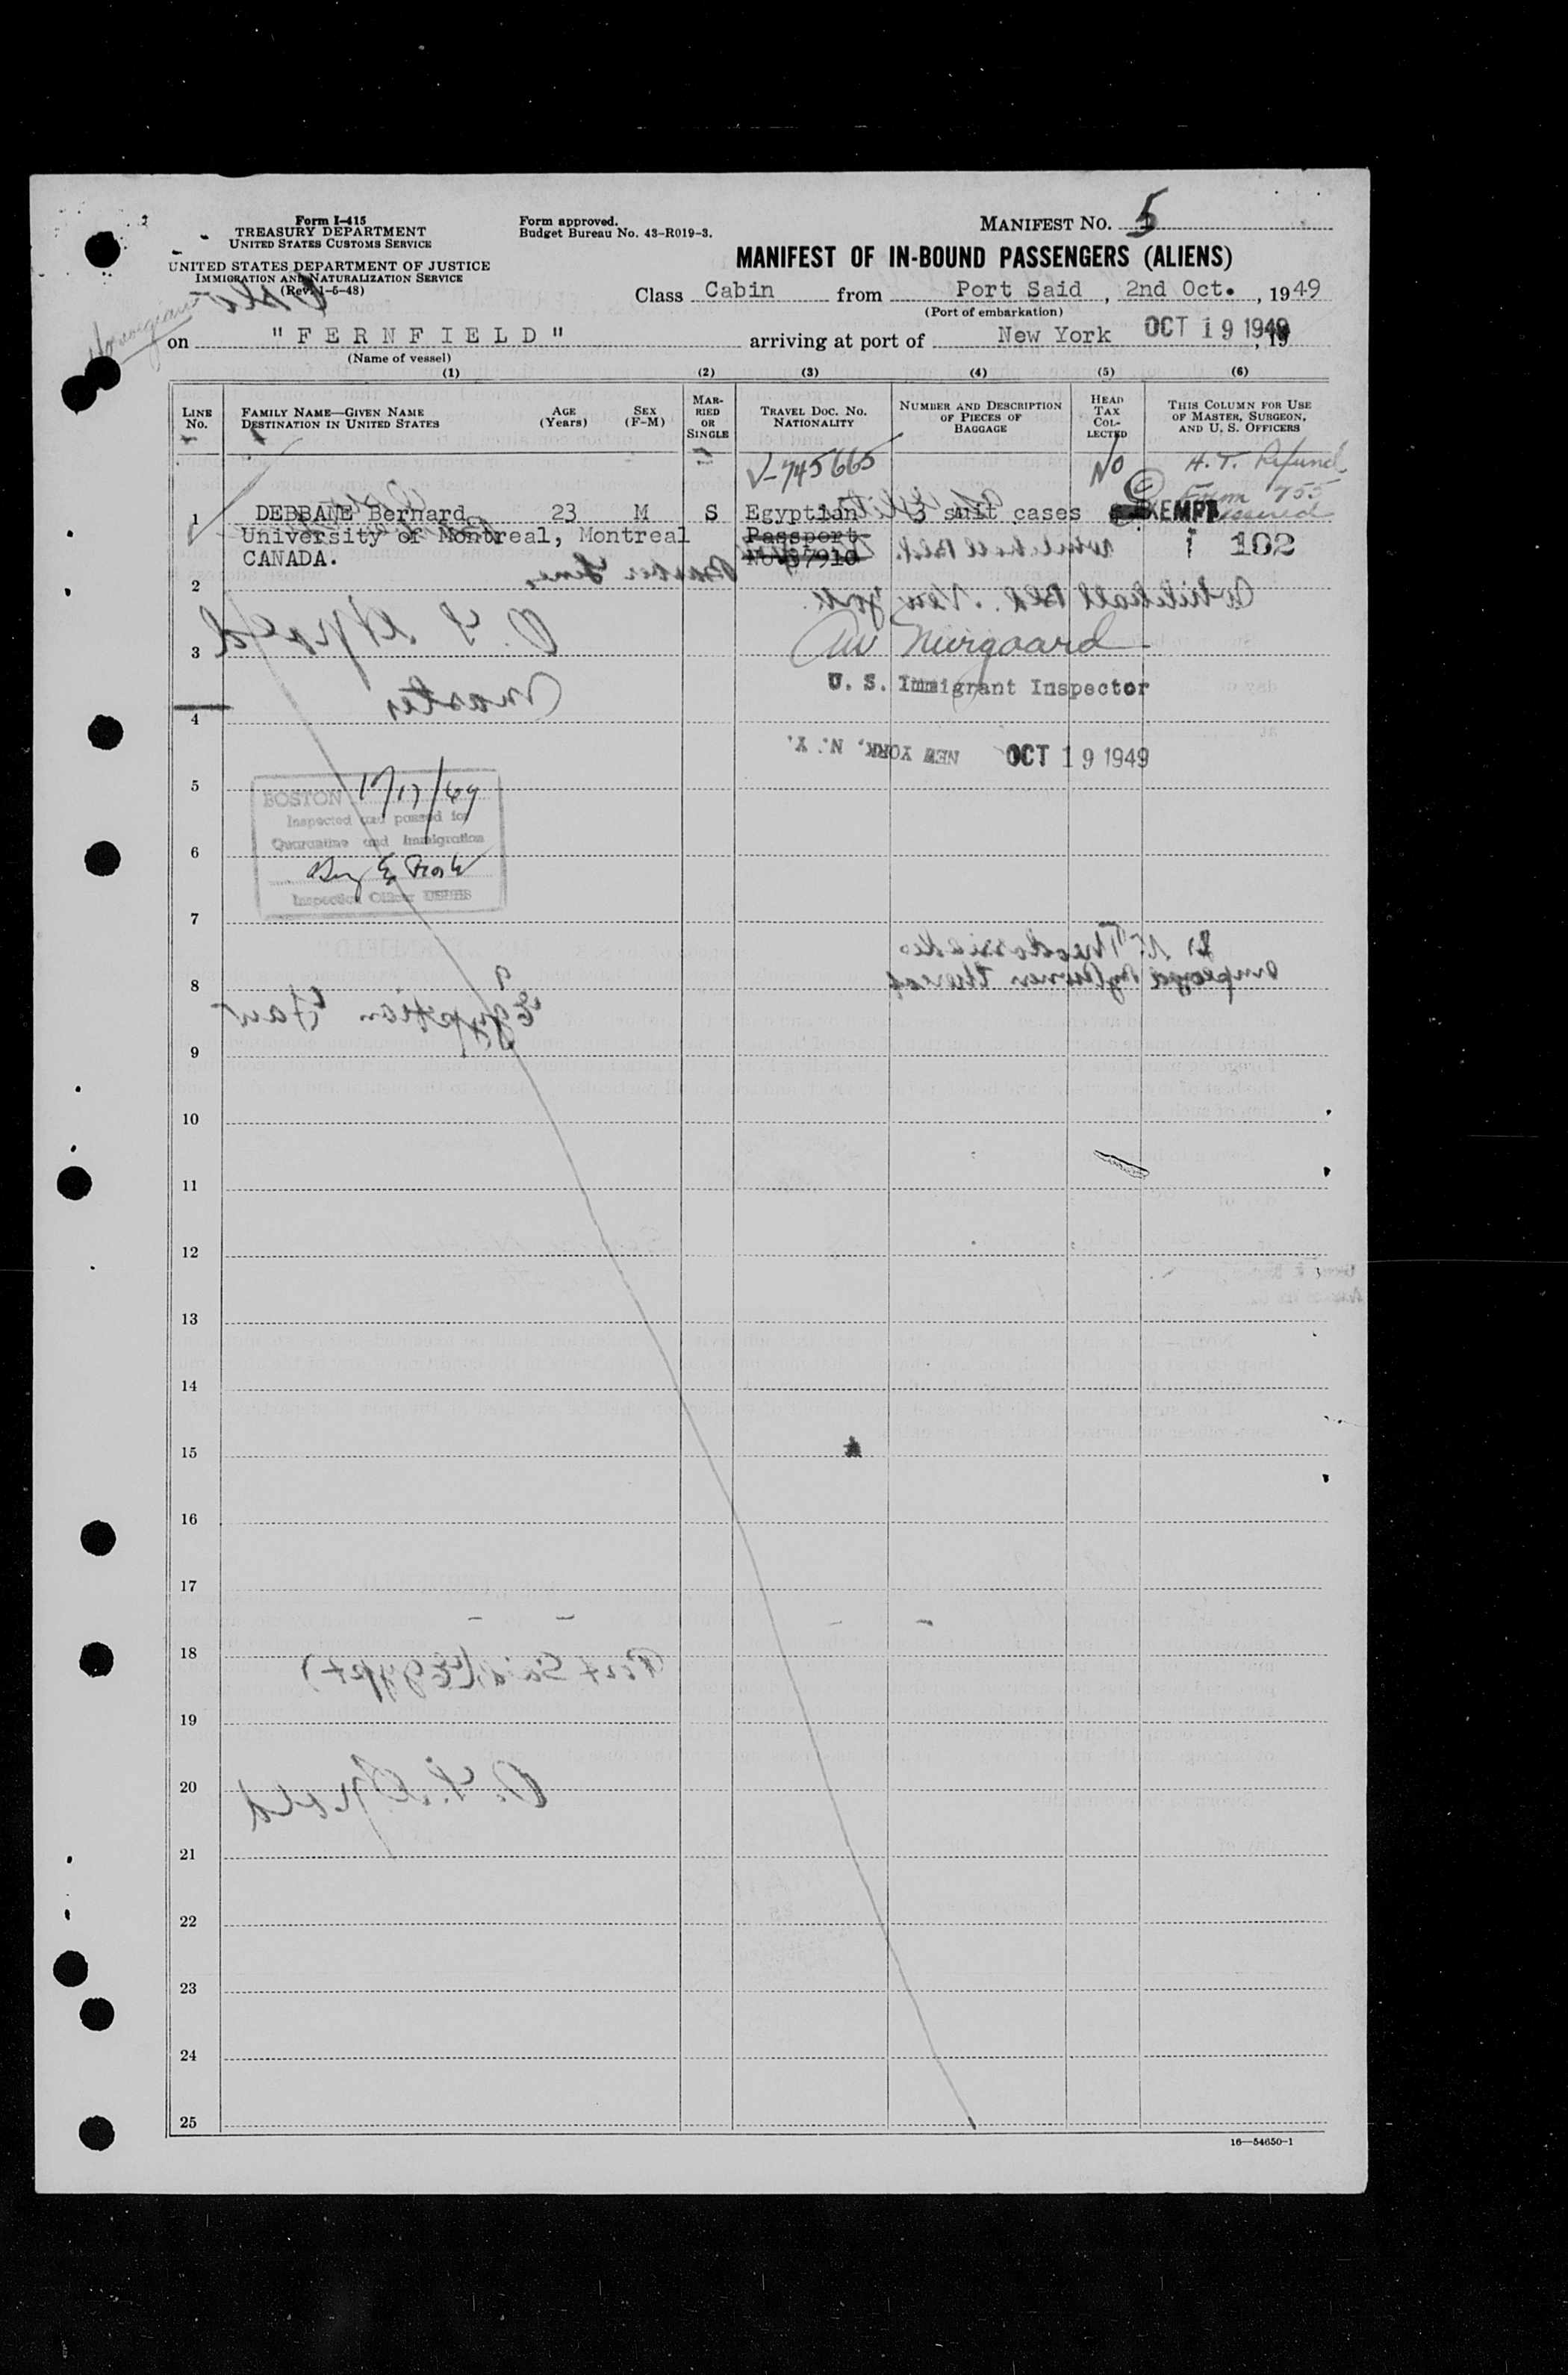 Form I-415
TREASURY DEPARTMENT
UNITED STATES CUSTOMS SERVICE
UNITED STATES DEPARTMENT OF JUSTICE
IMMIGRATION AND NATURALIZATION SERVICE
(Rev. 1-5-48)
Form approved.
Budget Bureau No. 43-R019-3.
MANIFEST NO. 5
MANIFEST OF IN-BOUND PASSENGERS (ALIENS)
Class Cabin from Port Said, 2nd Oct., 1949
(Port of embarkation)
Norwegian
on "FERNFIELD" arriving at port of New York OCT 19 1949, 19
(Name of vessel)
(1) (2) (3) (4) (5) (6)
LINE No.
FAMILY NAME—GIVEN NAME
DESTINATION IN UNITED STATES
AGE (Years)
SEX (F-M)
MARRIED OR SINGLE
TRAVEL DOC. NO. NATIONALITY
NUMBER AND DESCRIPTION OF PIECES OF BAGGAGE
HEAD TAX COLLECTED
THIS COLUMN FOR USE OF MASTER, SURGEON, AND U. S. OFFICERS
V-745665 No H. T. Refund
Form 755
1 DEBBANE Bernard 23 M S Egyptian 3 suit cases EXEMPT issued
University of Montreal, Montreal Passport 1 102
CANADA. No
2
Barber Line,
Whitehall Bld. New York.
3
U. S. Immigrant Inspector
Master
4
NEW YORK, N. Y. OCT 19 1949
5
BOSTON 10/17/49
Inspected and passed for
Quarantine and Immigration
6
Inspection Officer USPHS
7
8
Egyptian
9
10
11
12
13
14
15
16
17
18
Port Said (Egypt)
19
20
21
22
23
24
25
16—54650-1